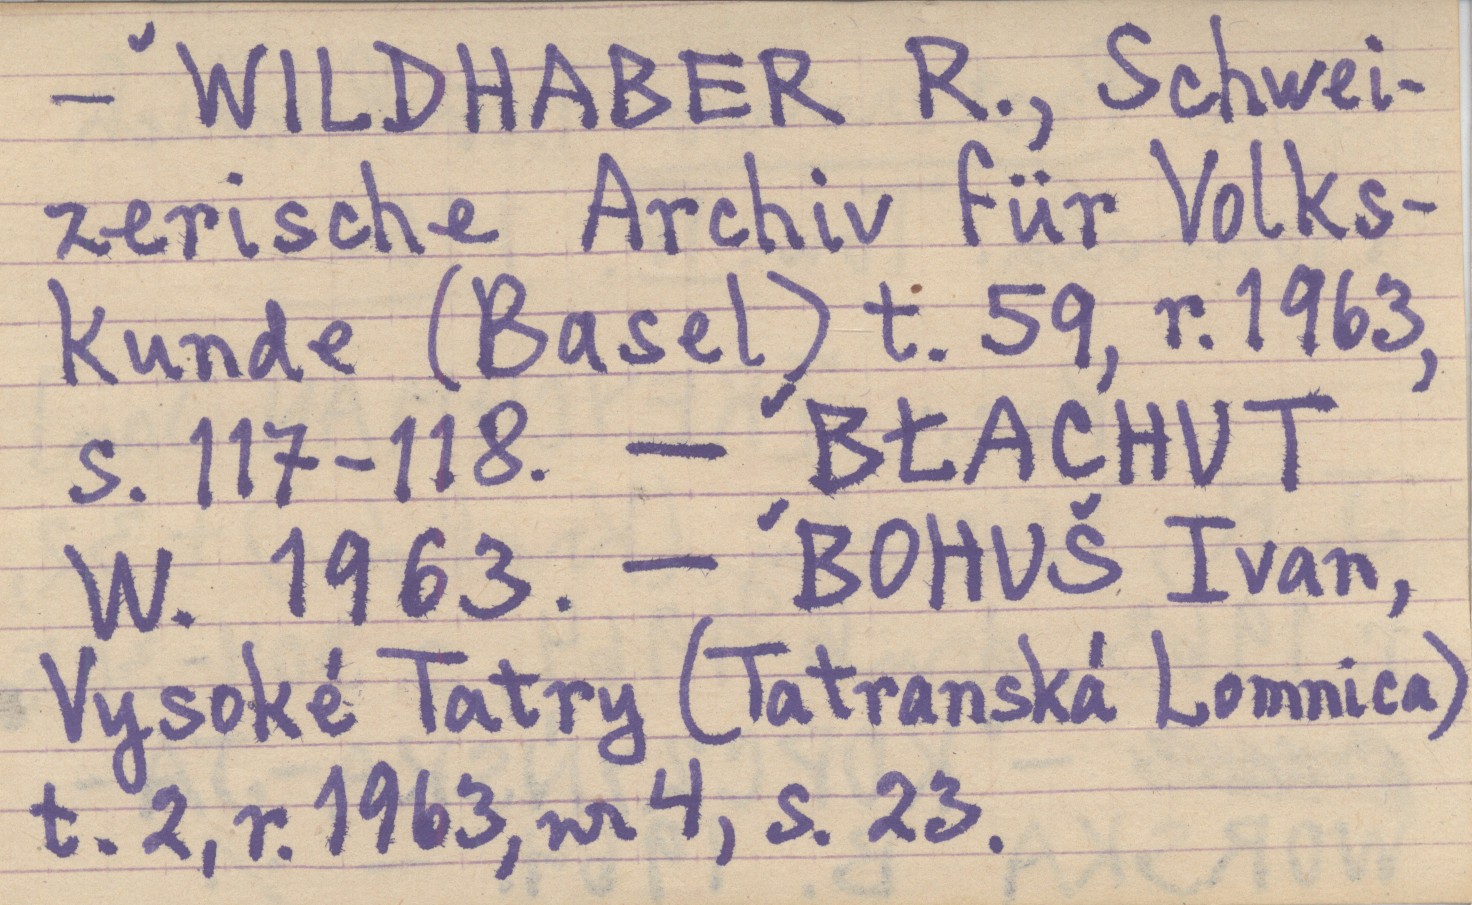 – ✓WILDHABER R., Schwei-
zerische Archiv für Volks-
kunde (Basel) t. 59, r. 1963,
s. 117-118. – ✓BŁACHUT
W. 1963. – ✓BOHUŠ Ivan,
Vysoké Tatry (Tatranská Lomnica)
t. 2, r. 1963, nr 4, s. 23.